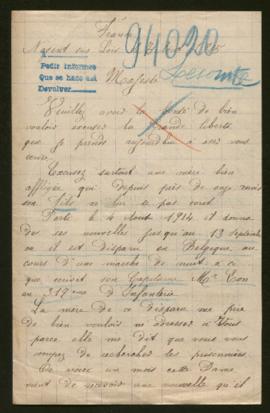 France
Nogent sur Loir
94020
Pedir informes
Que se hace así
Devolver
Majesté
Veuillez avoir la bonté de bien
vouloir excuser la grande liberté
que je prends aujourd'hui à
Excusez surtout une mère bien
affligée qui depuis près de onze mois
son fils ne lui
Parti le 4 Août 1914 il donna
de ses nouvelles jusqu'au 13 Septembre
ou il est disparu en Belgique, au
cours d'une marche de nuit à ce
que écrivit son Capitaine Mr
au 317 ème d'Infanterie
La mère de ce disparu me prie
de bien vouloir m'adresser à Vous
parce elle me dit que vous vous
occupez de rechercher les prisonniers.
un mois cette Dame
vient de recevoir une nouvelle qu'il